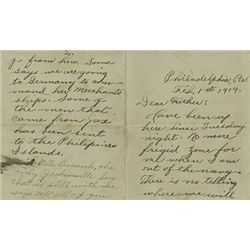 Philadelphia, Pa.
Feb. 1st 1919.
Dear Father:
Have been up
here since Tuesday
night. No more
frigid zone for
me when I am
out of the navy.
There is no telling
where we will
2.
go from here. Some
says we are going
to Germany to com-
mand her Merchant
ships. Some of
the men that
came from Jax
has been sent
to the Philipines
Islands.
the
only Jacksonville boy
that is still with me
says tell all of you